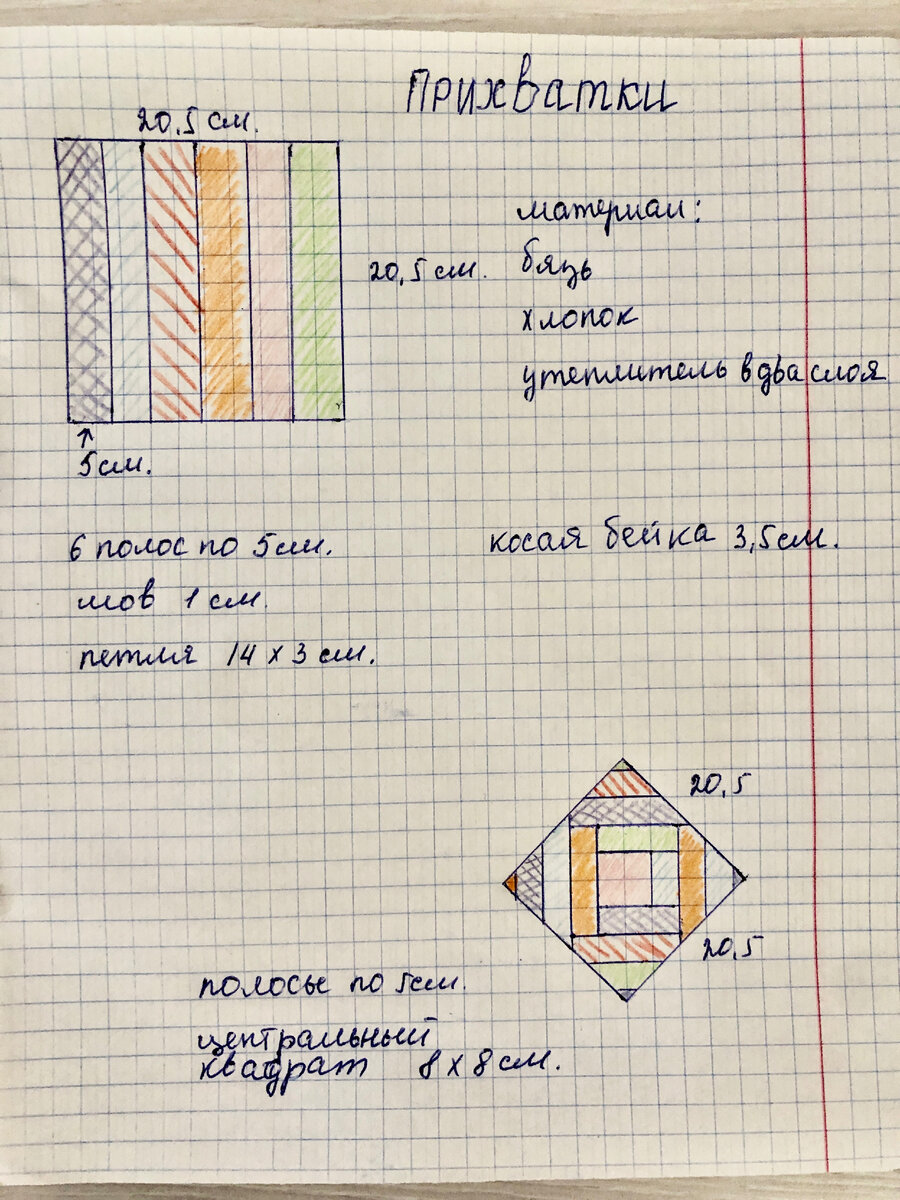 Прихватки
20,5 см.
материал:
20,5 см.
бязь
хлопок
утеплитель в два слоя
5 см.
6 полос по 5 см.
косая бейка 3,5 см.
шов 1 см.
петля 14 х 3 см.
20,5
20,5
полосы по 5 см.
центральный
квадрат 8 х 8 см.